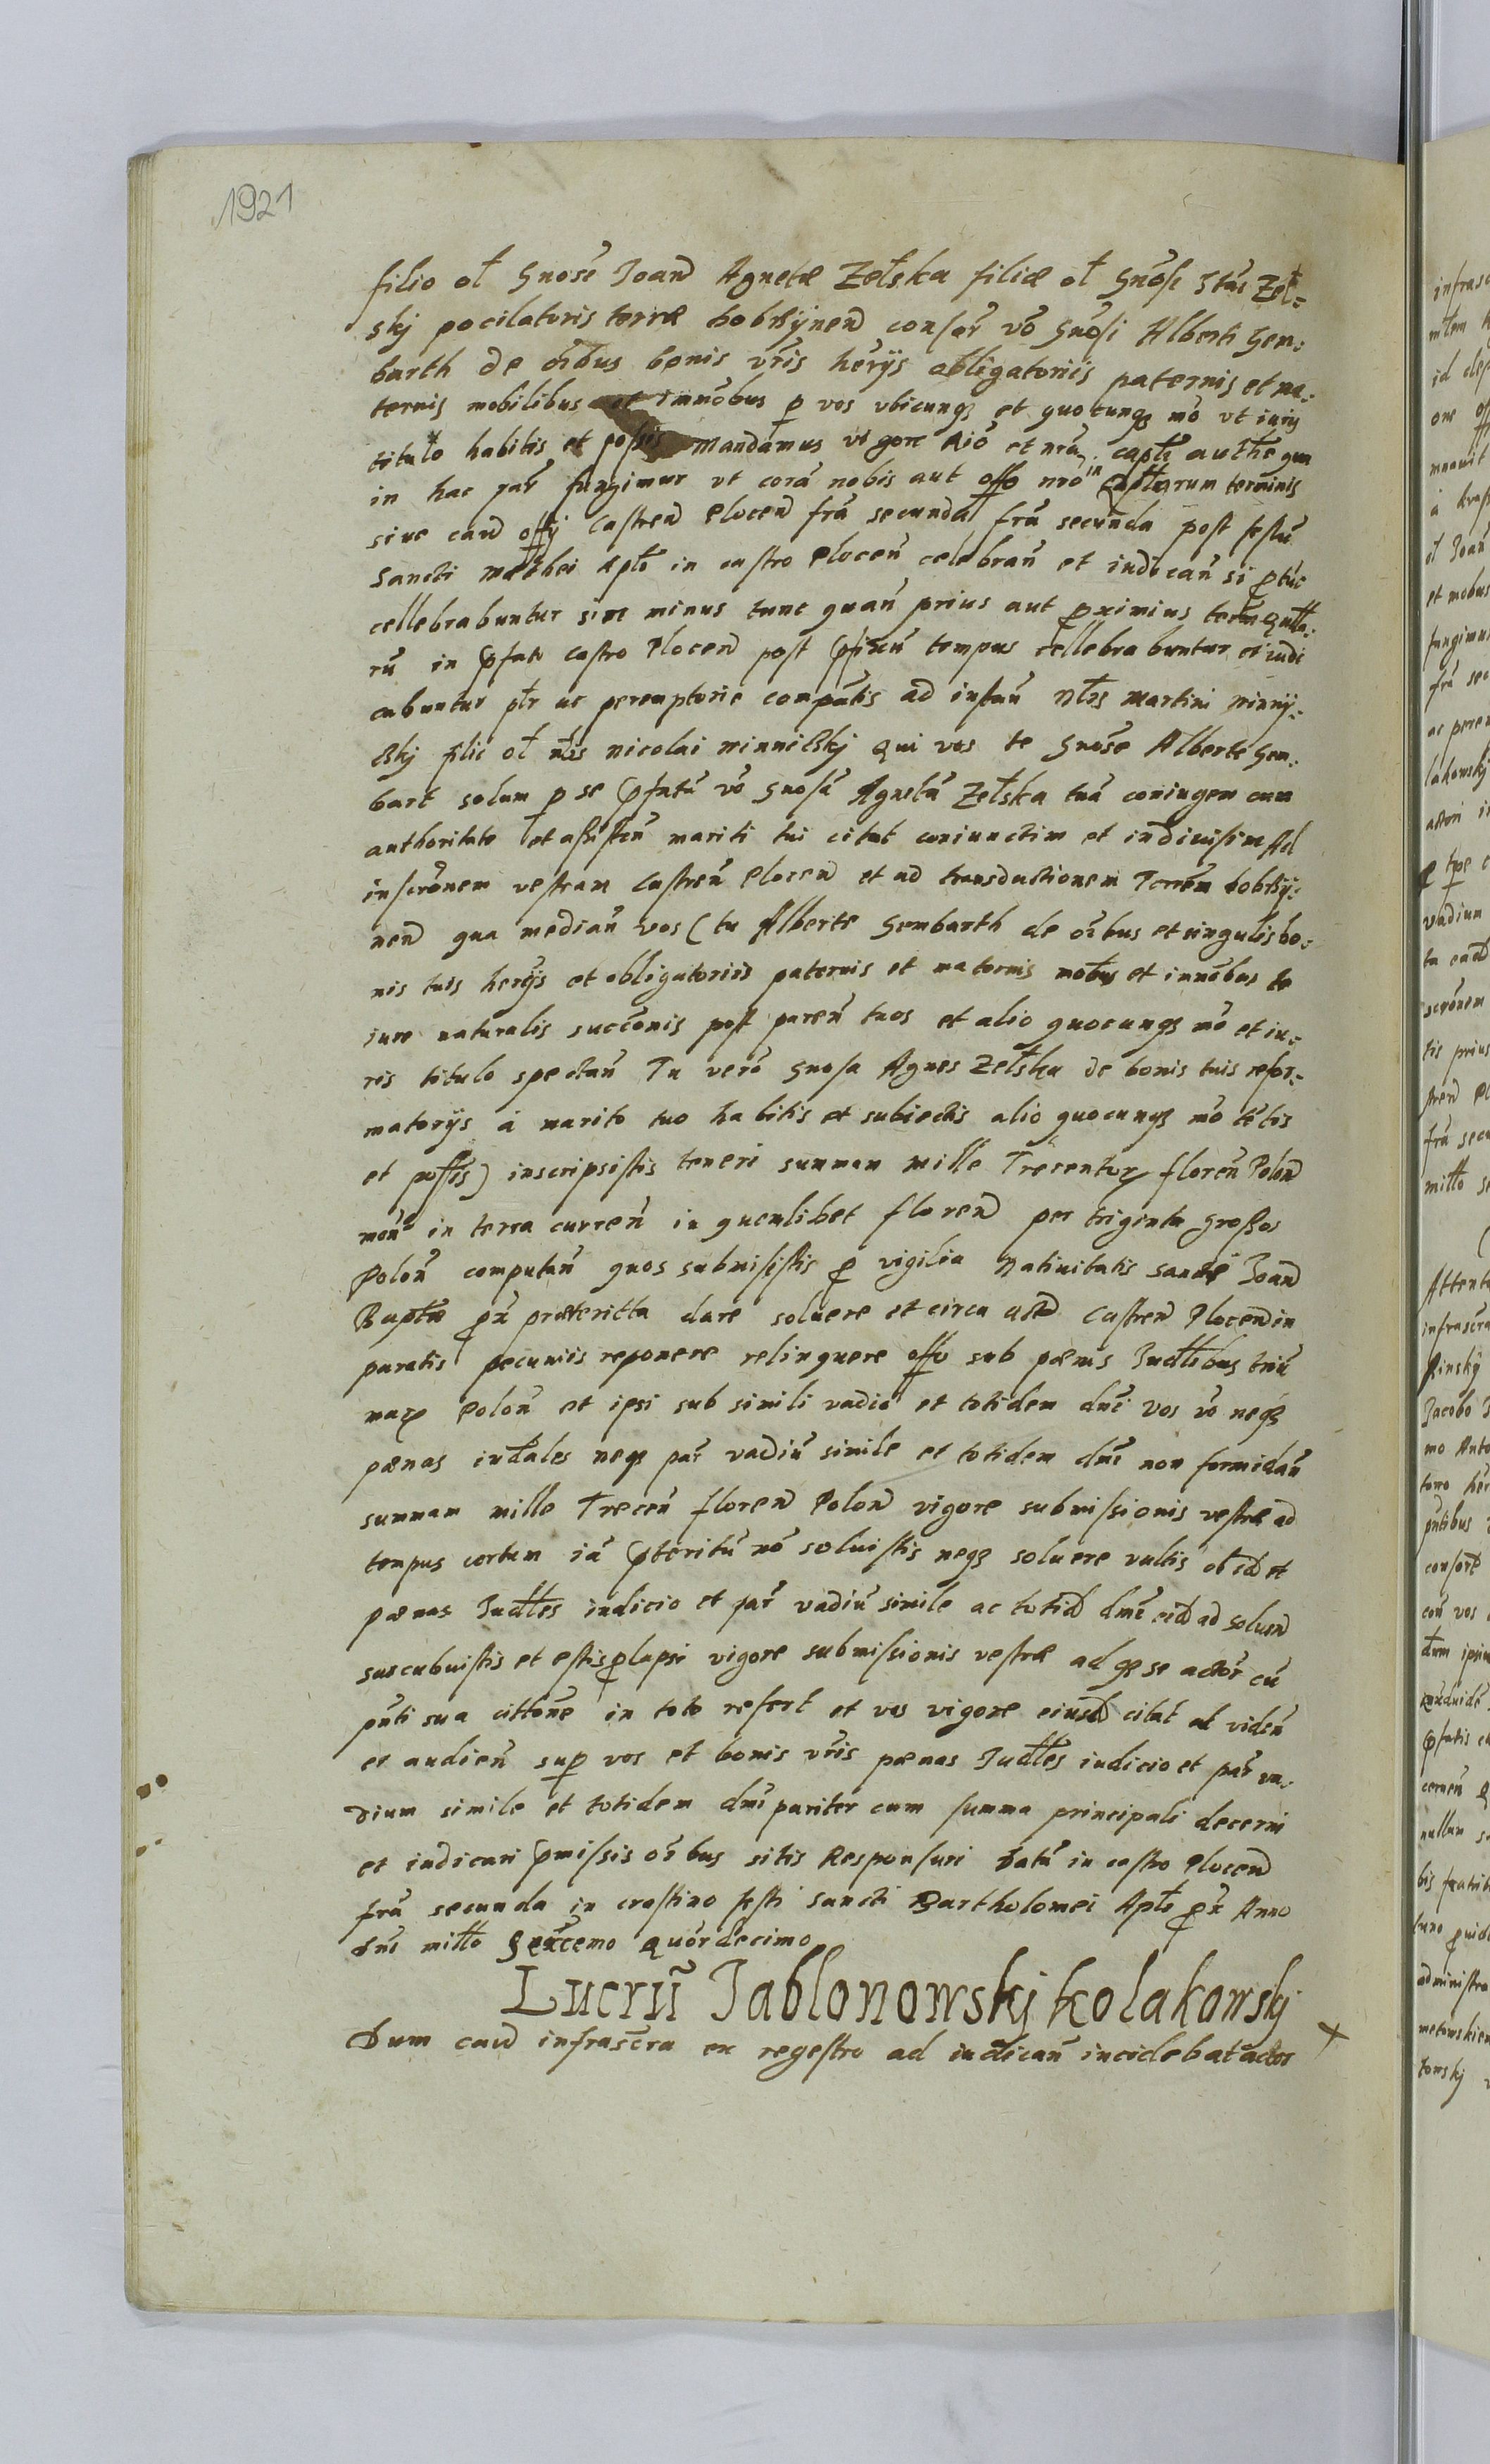 1921
filio ol Gnose Joan Agnetæ Zelska filiæ ol Gnosi Stai Zel=
skj pocilatoris terræ Dobrzÿnen consor vo Gnosi Alberti Gem:
barth de oibus bonis vris herÿs obligatoriis paternis et ma:
ternis mobilibus et immobus p vos vbicunqз et quocunqз mo vt iuris
titulo habitis et possis Mandamus vigore Rio et nra captr authe qua
in hac par fungimur vt cora nobis aut offo nro in Captorum terminis
siue caus offÿ Castren Plocen fra secunda fra secunda post festu
Sancti Mathei Apli in castro Plocen celebran et iudican si ptuc
cellebrabuntur sin minus tunc quan prius aut proximius term qutto:
ru in pfato castro Plocen post pfixu tempus cellebrabuntur et iudi
cabuntur ptr ac peremptorie compatis ad instan nlis Martini Ninnÿ:
skj filii ol nlis Nicolai Ninnilskj qui vos te Gnose Alberte Gem:
bart solum p se pfata vo Gnosa Agneta Zelska tua coniugem cum
authoritate et assisten mariti tui citat coniunctim et indiuisim Ad
inscronem vestram Castren Plocen et ad transductionem Terrem Dobrzÿ:
nen qua median vos (tu Alberte Gembarth de oibus et singulis bo:
nis tuis herÿs et obligatoriis paternis et maternis mobus et immobus te
iure naturalis succonis post paren tuos et alio quocunqз mo et iu:
ris titulo spectan Tu vero Gnosa Agnes Zelska de bonis tuis refor:
matorÿs a marito tuo habitis et subiectis alio quocunqз mo tetis
et possis) inscripsistis teneri summam mille Trecentor floren Polon
mon in terra curren in quemlibet floren per triginta grossos
Polon computan quos submisistis p vigilia Natiuitatis Sancti Joan
Baptæ px præteritta dare soluere et circa acta Castren Plocen in
paratis pecuniis reponere relinquere offo sub pænis Judlibus triu
mar Polon et ipsi sub simili vadio et totidem dni vos vo neqз
pænas iudales neqз par vadiu simile et totidem dni non formidan
summam mille Trecen floren Polon vigore submissionis vestræ ad
tempus certum ia pteritu no soluistis neqз soluere vultis ob id et
pænas Judlles iudicio et par vadiu simile ac totid dni eid ad soluen
succubuistis et estis plapsi vigore submissionis vestræ ad qз se actor cu
pnti sua cittone in toto refert et vos vigore eiusd citat ad viden
et audien sup vos et bonis vris pænas Judlles iudicio et par va:
dium simile et totidem dni pariter cum summa principali decerni
et iudicari pmissis oibus sitis Responsuri Datu in castro Plocen
fra secunda in crastino festi Sancti Bartholomei Apli px Anno
Dni millo Sexcemo quordecimo
Lucru Jablonowskj Kolakowskj
Dum caus infrascra ex regestro ad iudican incidebat actor